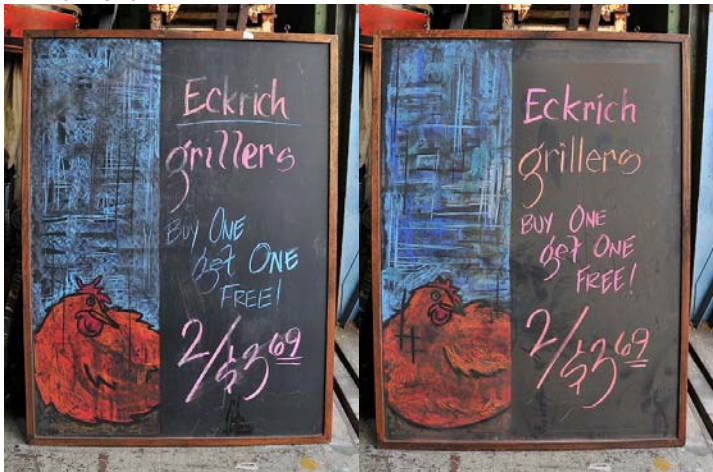 Eckrich
grillers
BUY ONE
get ONE
FREE!
2/$3.69
Eckrich
grillers
BUY ONE
get ONE
FREE!
2/$3.69